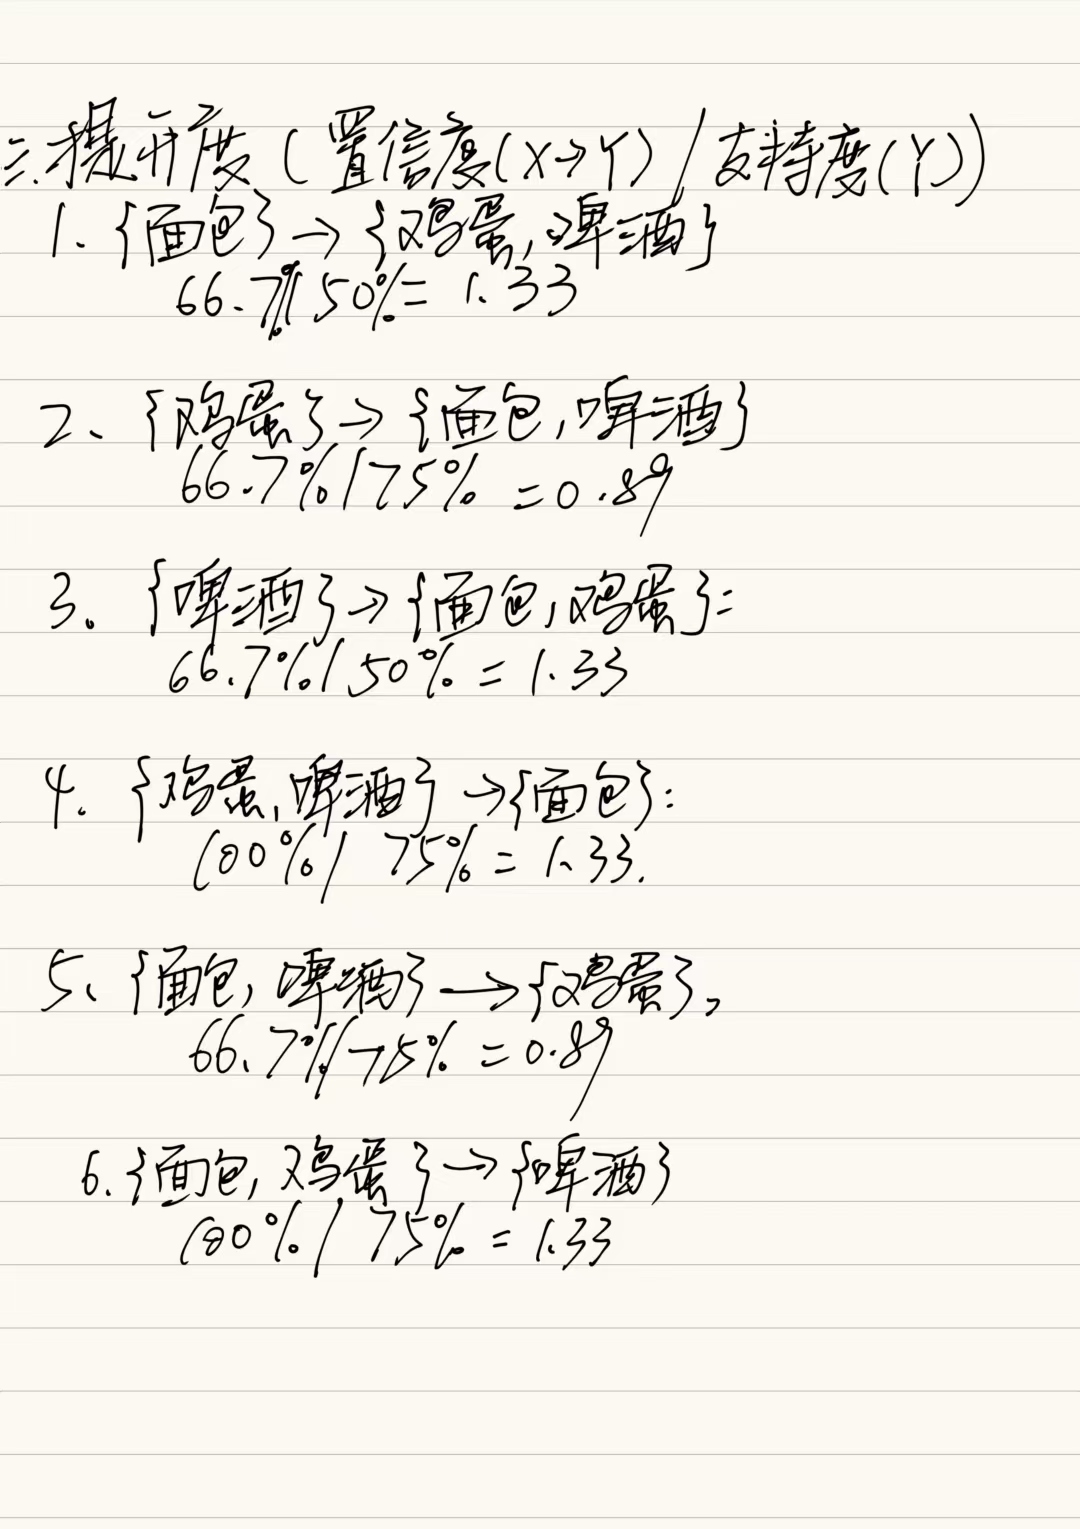 三.提升度(置信度(X→Y)/支持度(Y))
1.{面包}→{鸡蛋,啤酒}
66.7%/50%=1.33
2、{鸡蛋}→{面包,啤酒}
66.7%/75%=0.89
3。{啤酒}→{面包,鸡蛋}:
66.7%/50%=1.33
4.{鸡蛋,啤酒}→{面包}:
100%/75%=1.33.
5、{面包,啤酒}→{鸡蛋},
66.7%/75%=0.89
6.{面包,鸡蛋}→{啤酒}
100%/75%=1.33